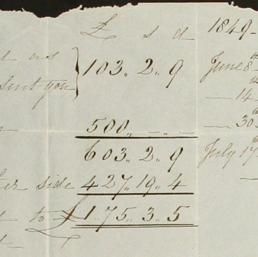 £ s d 1849
103 " 2 " 9 June 8
sent you 14
500 " " 30
603 " 2 " 9 July 17
side 427 " 19 " 4
to £ 175 " 3 " 5